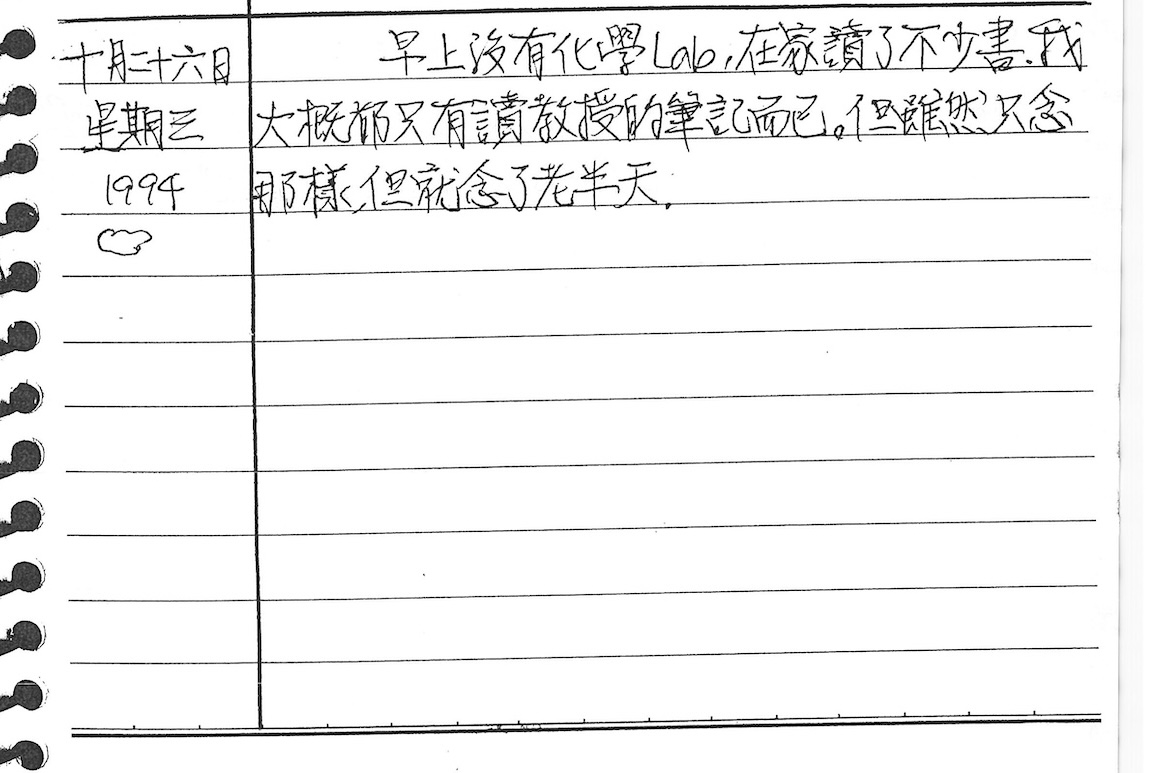 十月二十六日
星期三
1994
早上沒有化學Lab,在家讀了不少書.我
大概都只有讀教授的筆記而已。但雖然只念
那樣,但就念了老半天.